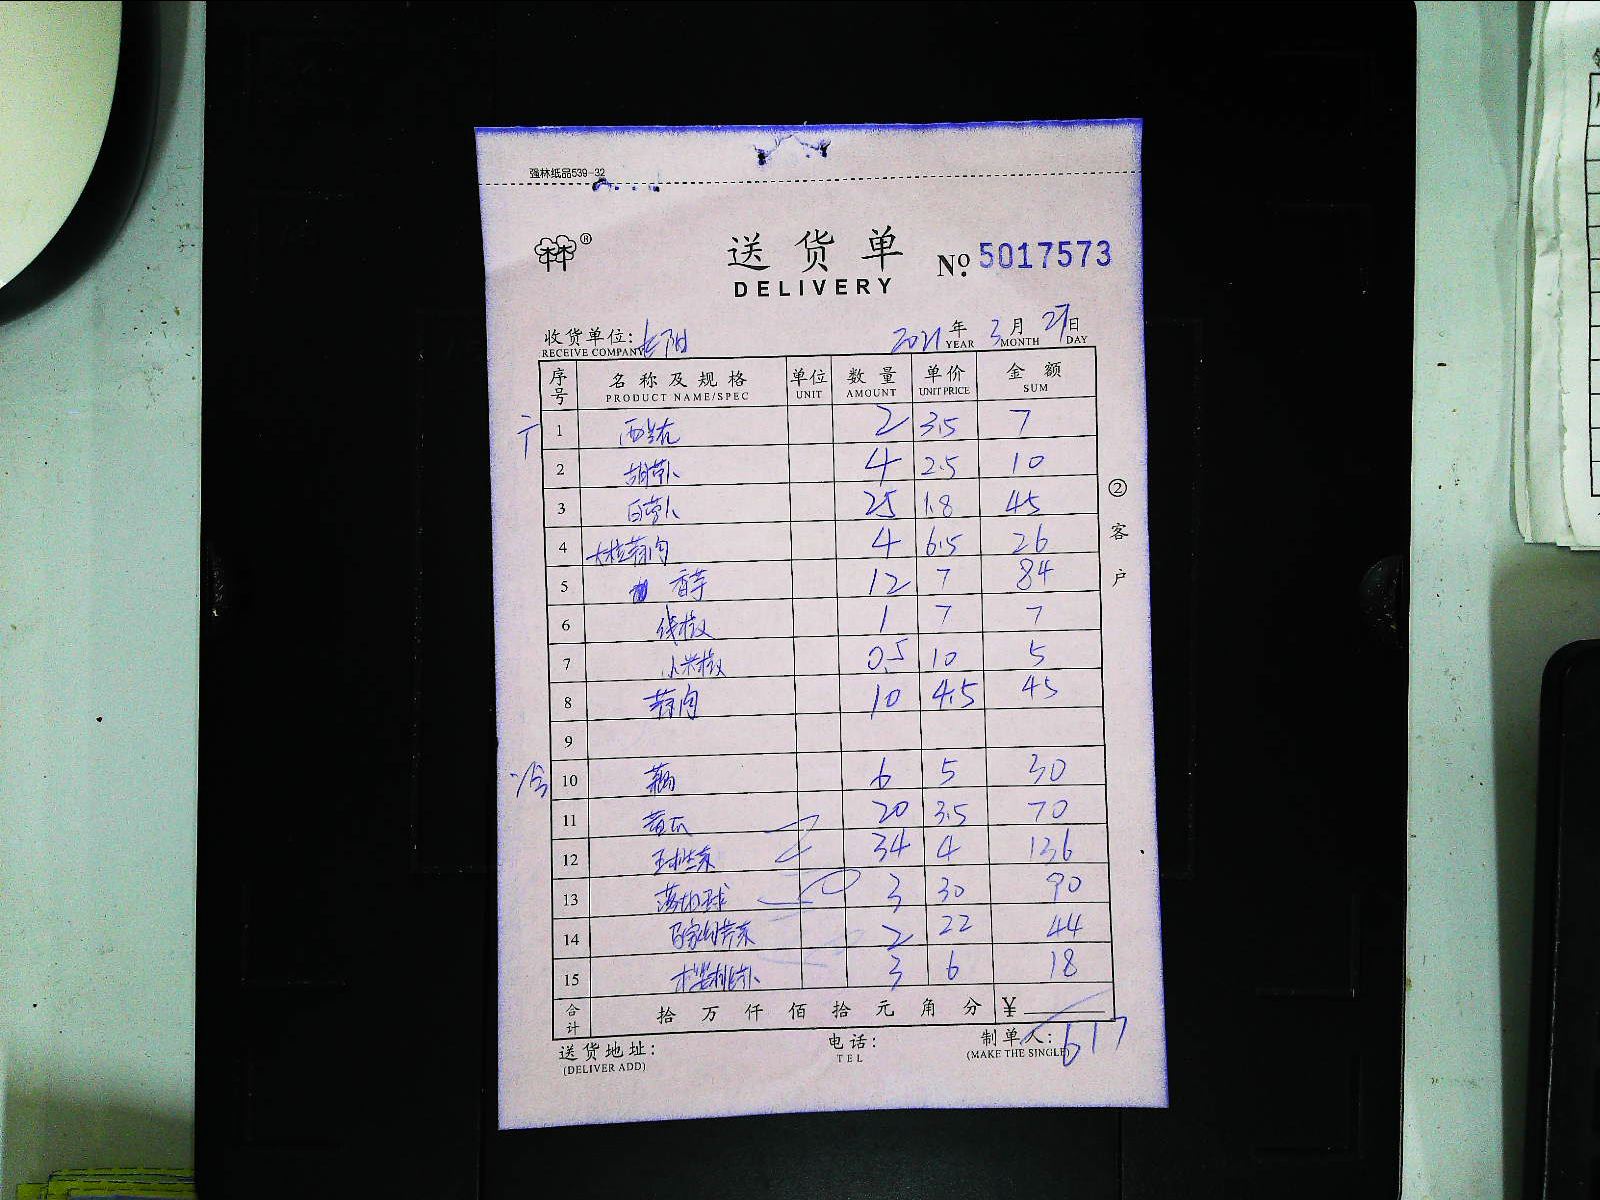 强林纸品539-32
林®
送货单 No. 5017573
DELIVERY
收货单位: 2021年 3月 27日
RECEIVE COMPANY YEAR MONTH DAY
序号 名称及规格 单位 数量 单价 金额
PRODUCT NAME/SPEC UNIT AMOUNT UNIT PRICE SUM
1 2 3.5 7
2 胡萝卜 4 2.5 10
3 白萝卜 25 1.8 45
4 4 6.5 26
5 香芋 12 7 84
6 线椒 1 7 7
7 小米椒 0.5 10 5
8 10 4.5 45
9
10 6 5 30
11 黄瓜 20 3.5 70
12 34 4 136
13 3 30 90
14 2 22 44
15 3 6 18
合计 拾万仟佰拾元角分 ¥ 617
送货地址: 电话: 制单人:
(DELIVER ADD) TEL (MAKE THE SINGLE)
②客户